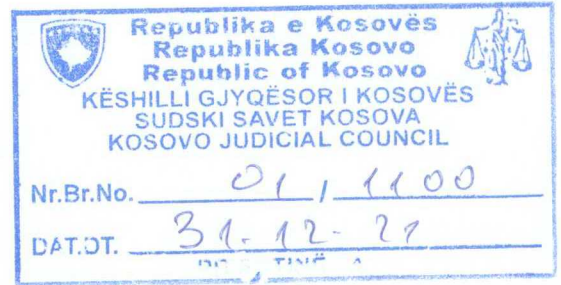 Republika e Kosovës
Republika Kosovo
Republic of Kosovo
KËSHILLI GJYQËSOR I KOSOVËS
SUDSKI SAVET KOSOVA
KOSOVO JUDICIAL COUNCIL
Nr.Br.No. 01 / 1100
DAT.DT. 31-12-21